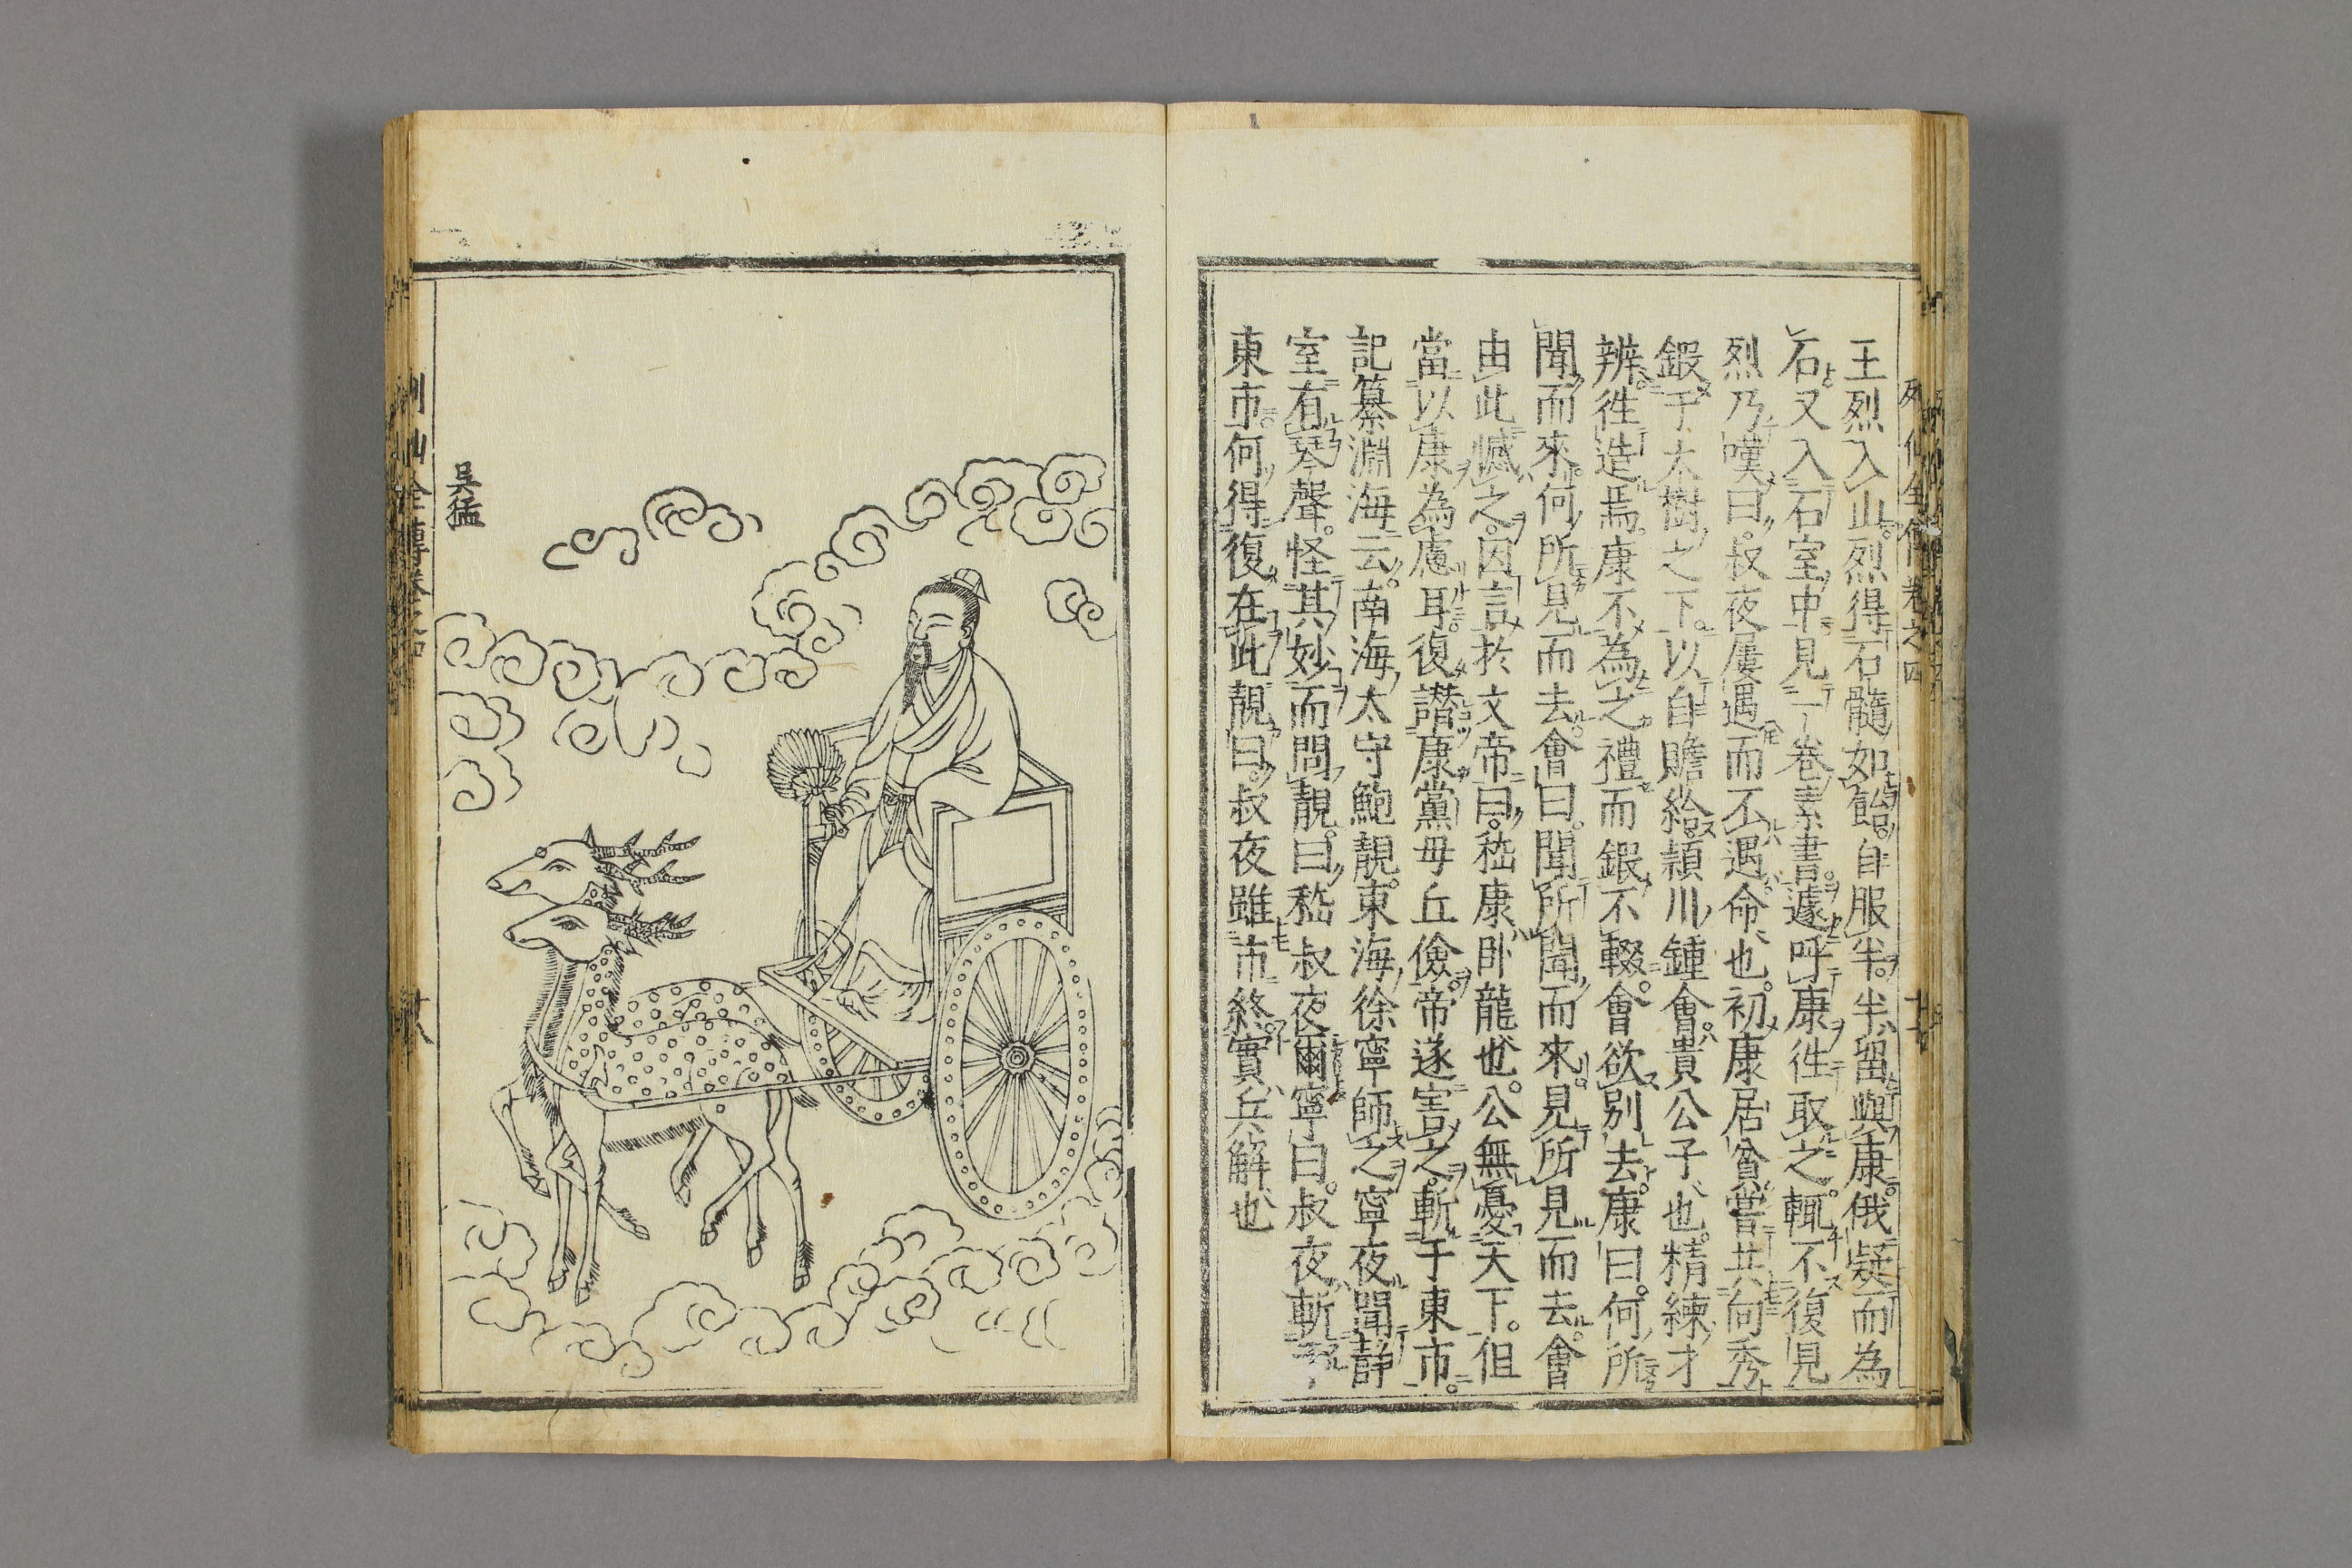 王烈入山。烈得石髓如飴。自服半。半留與康。俄疑而為
石。又入石室中。見一卷素書。遽呼康徃取之。輒不復見
烈乃嘆曰。叔夜屢遇而不遇。命也。初康居貧。嘗共向秀
鍜于大樹之下。以自贍給。頴川鍾會。貴公子也。精練才
辨。徃造焉。康不為之禮而鍜不輟。會欲別去。康曰。何所
聞而來。何所見而去。會曰。聞所聞而來。見所見而去。會
由此憾之。因言於文帝曰。嵇康臥龍也。公無憂天下。但
當以康為慮耳。復譖康黨毋丘儉。帝遂害之。斬于東市。
記纂淵海云。南海太守鮑靚。東海徐寧師之。寧夜聞靜
室有琴聲。怪其妙而問靚。曰嵇叔夜爾。寧曰。叔夜斬于
東市。何得復在此。靚曰。叔夜雖市終。實兵解也
列仙全傳卷之四
吳猛